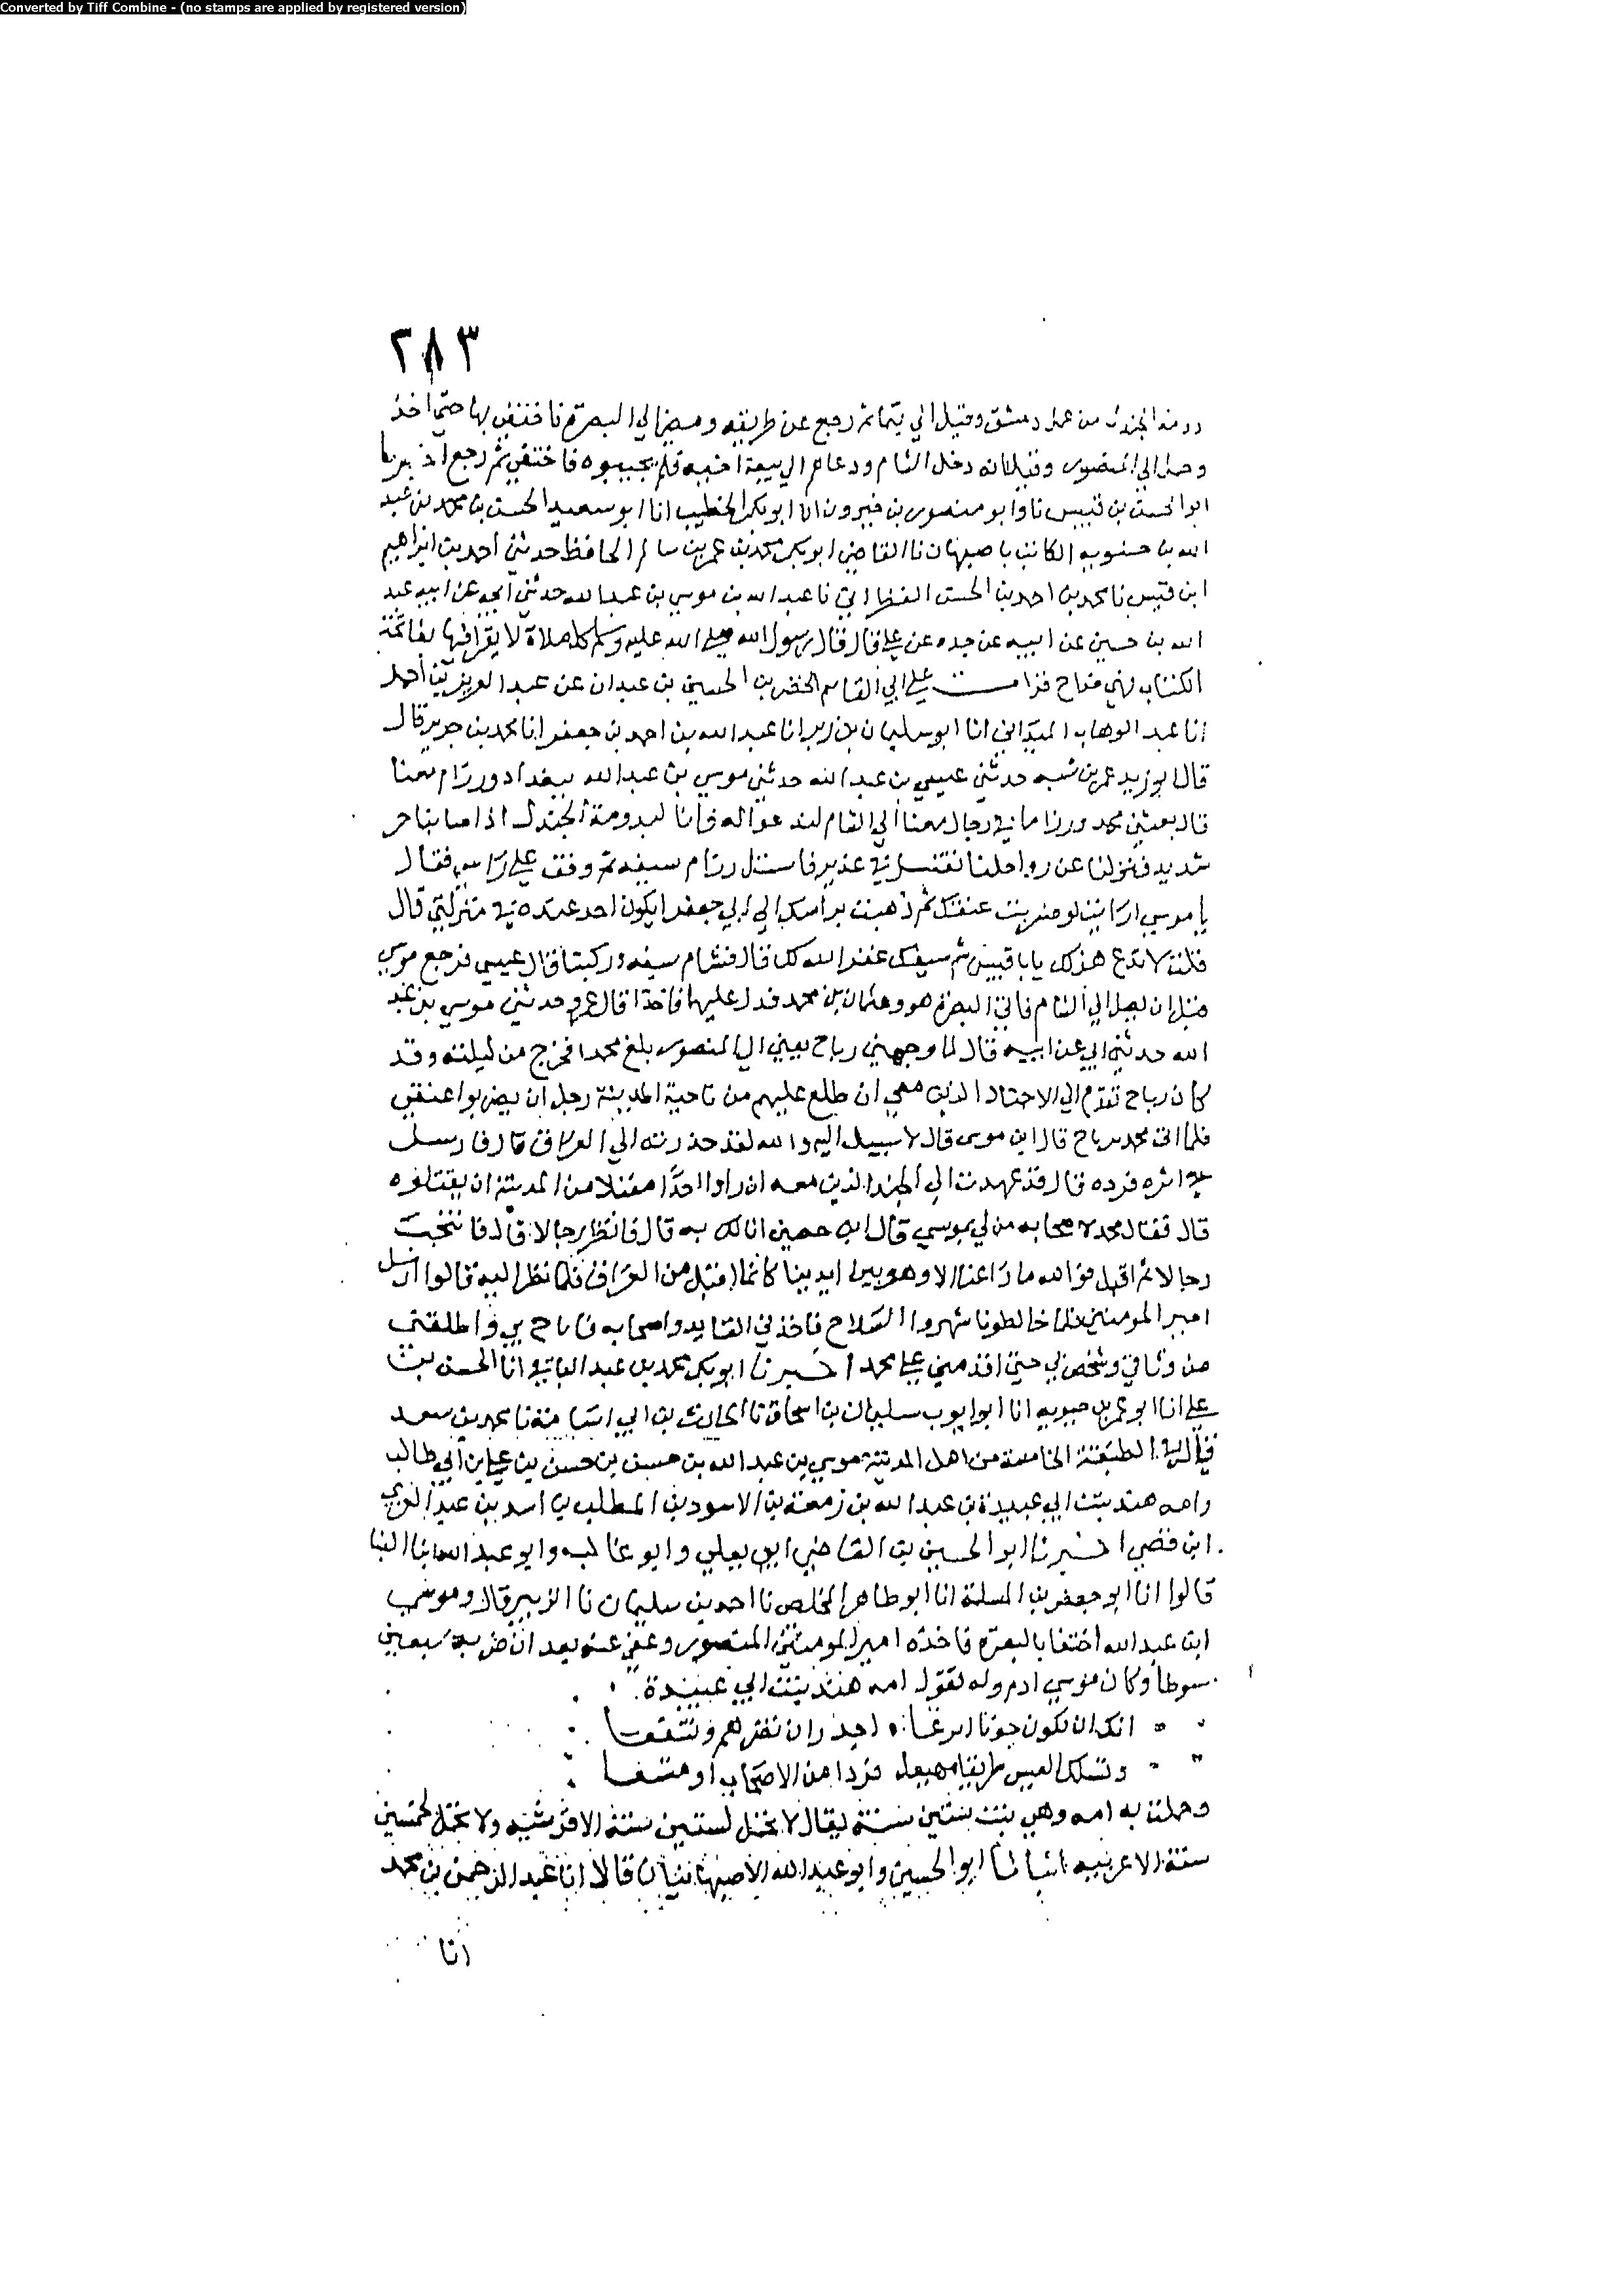 Converted by Tiff Combine - (no stamps are applied by registered version)
٢٨٣
دومة الجندل من عمل دمشق وقيل الي تيما ثم رجع عن طريقه ومضي الي البصرة فاختفي بها حتي اخذ
وحمل الي المنصور وقيل انه دخل الشام ودعاهم الي بيعة اخيه فلم يجيبوه فاختفي ثم رجع اخبرنا
ابو الحسن بن قبيس نا وابو منصور بن خيرون انا ابو بكر الخطيب انا ابو سعيد الحسن بن محمد بن عبد
الله بن حسنويه الكاتب باصبهان نا القاضي ابو بكر محمد بن عمر بن سالم الحافظ حدثني احمد بن ابراهيم
ابن قبيس نا محمد بن احمد بن الحسن القطواني نا عبد الله بن موسي بن عبد الله حدثني ابي عن ابيه عبد
الله بن حسين عن ابيه عن جده عن علي قال قال رسول الله صلي الله عليه وسلم كل صلاة لا يقرا فيها بفاتحة
الكتاب فهي خداج قرات علي ابي القاسم الخضر بن الحسين بن عبدان عن عبد العزيز بن احمد
انا عبد الوهاب الميداني انا ابو سليمان بن زبر انا عبد الله بن احمد بن جعفر انا محمد بن جرير قال
قال ابو زيد عمر بن شبه حدثني عيسي بن عبد الله حدثني موسي بن عبد الله ببغداد ورزام معنا
قال بعثني محمد ورزاما في رجال معنا الي الشام لندعو اله فانا لبدومة الجندل اذ اصابنا حر
شديد فنزلنا عن رواحلنا نغتسل في غدير فاستل رزام سيفه ثم وقف علي راسي فقال
يا موسي ارايت لو ضربت عنقك ثم ذهبت براسك الي ابي جعفر ايكون احد عنده في منزلتي قال
قلت لا تدع هزلك يابا قيس شم سيفك غفر الله لك قال فشام سيفه وركبنا قال عيسي فرجع موسي
قبل ان يصل الي الشام فاتي البصرة هو وعثمان بن محمد فدل عليهما فاخذا قال عمر وحدثني موسي بن عبد
الله حدثني ابي عن ابيه قال لما وجهني رباح يعني الي المنصور بلغ محمدا فخرج من ليلته وقد
كان رباح تقدم الي الاجناد الذين معي ان طلع عليهم من ناحية المدينة رجل ان يضربوا عنقي
فلما اتي محمد برباح قال اين موسي قال لا سبيل اليه والله لقد حدرته الي العراق قال فارسل
في اثره فرده قال قد عهدت الي الجند الذين معه ان راوا احدا مقبلا من المدينة ان يقتلوه
قال فقال محمد لاصحابه من لي بموسي قال ابن حصين انا لك به قال فانظر رجالا قال فانتخب
رجالا ثم اقبل فوالله ما راعنا الا وهو بين ايدينا كانما اقبل من العراق فلما نظر اليه قالوا رسل
امير المومنين فلما خالطونا شهروا السلاح فاخذني القايد واصحابه فاناخ بي واطلقني
من وثاقي وشخص بي حتي اقدمني علي محمد اخبرنا ابو بكر محمد بن عبد الباقي انا الحسن بن
علي انا ابو عمر بن حيويه انا ابو ايوب سليمان بن اسحاق نا الحارث بن ابي اسامة نا محمد بن سعد
قال في الطبقة الخامسة من اهل المدينة موسي بن عبد الله بن حسن بن حسن بن علي بن ابي طالب
وامه هند بنت ابي عبيدة بن عبد الله بن زمعة بن الاسود بن المطلب بن اسد بن عبد العزي
ابن قصي اخبرنا ابو الحسين بن القاضي ابي يعلي وابو غالب وابو عبد الله ابنا البنا
قالوا انا ابو جعفر بن المسلمة انا ابو طاهر المخلص نا احمد بن سليمان نا الزبير قال وموسي
ابن عبد الله اختفا بالبصرة فاخذه امير المومنين المنصور وعفي عنه بعد ان ضربه سبعين
سوطا وكان موسي ادم وله تقول امه هند بنت ابي عبيدة
انك ان تكون جونا انزعا اجدر ان تضرهم وتنفعا
وتسلك العيس طريقا مهيعا فردا من الاصحاب او مشيعا
وحملت به امه وهي بنت ستين سنة يقال لا تحمل لستين سنة الا قرشية ولا تحمل لخمسين
سنة الا عربيه انبانا ابو الحسين وابو عبد الله الاصبهانيان قالا انا عبد الرحمن بن محمد
انا